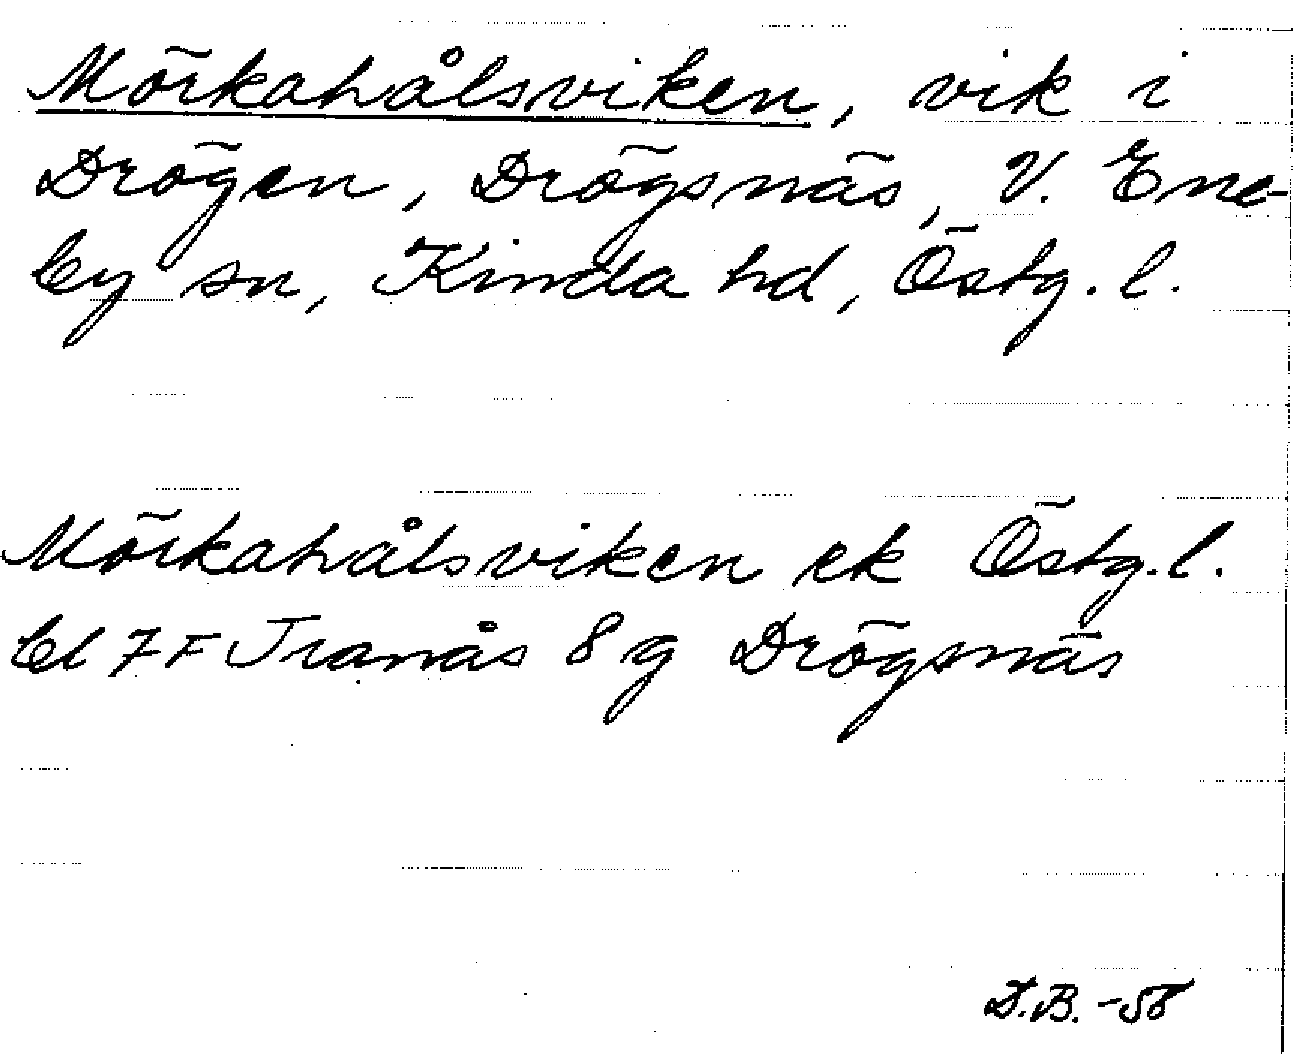 Mörkahålsviken, vik i
Drögen, Drögsnäs, V. Ene-
by sn, Kinda hd, Östg. l.
Mörkahålsviken ek Östg. l.
bl 7F Tranås 8g Drögsnäs
D.B. -58